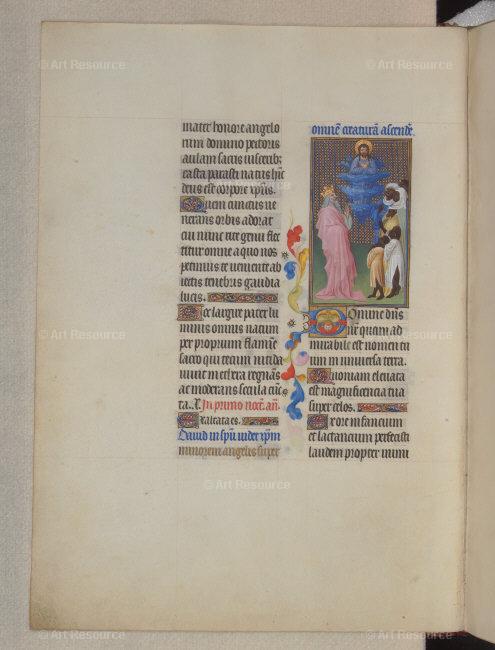 mater honore angelo
rum domino pectoris
aulam sacris visceribz
casta parasti natus hic
deus est corpore xpus.
Quem cunctus ve
nerans orbis adorat
cui nunc rite genu flec
titur omne a quo nos
petimus te veniente ab
iectis tenebris gaudia
lucis.
hoc largire pater lu
minis omnis natum
per proprium flamine
sacro qui tecum nitida
vivit in ethra regnas
ac moderans secula cunc
ta. Ā. In primo noct. an.
Exaltata es.
David in spu videt xpm
minorem angelis super
omne creatura ascende.
Domine dns
nr quam ad
mirabile est nomen tu
um in universa terra.
Quoniam elevata
est magnificencia tua
super celos.
Ex ore infancium
et lactancium perfecisti
laudem propter inimi
© Art Resource
© Art Resource
© Art Resource
© Art Resource
© Art Resource
© Art Resource
© Art Resource
© Art Resource